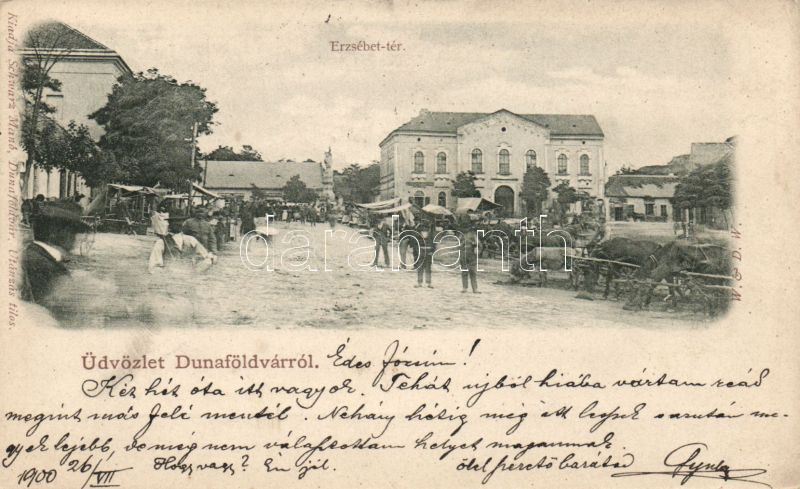 Erzsébet-tér.
Kiadja Schwarz Manó, Dunaföldvár. Utánzás tilos.
W. & D. W.
darabanth
Üdvözlet Dunaföldvárról. Édes Józsim!
Két hét óta itt vagyok. Tehát ujból hiába vártam reád
megint más felé mentél. Nehány hétig még itt leszek azután me-
gyek lejebb, de még nem választottam helyet magamnak.
1900 26/VII Hogy vagy? Én jól. ölel szerető barátod Gyula